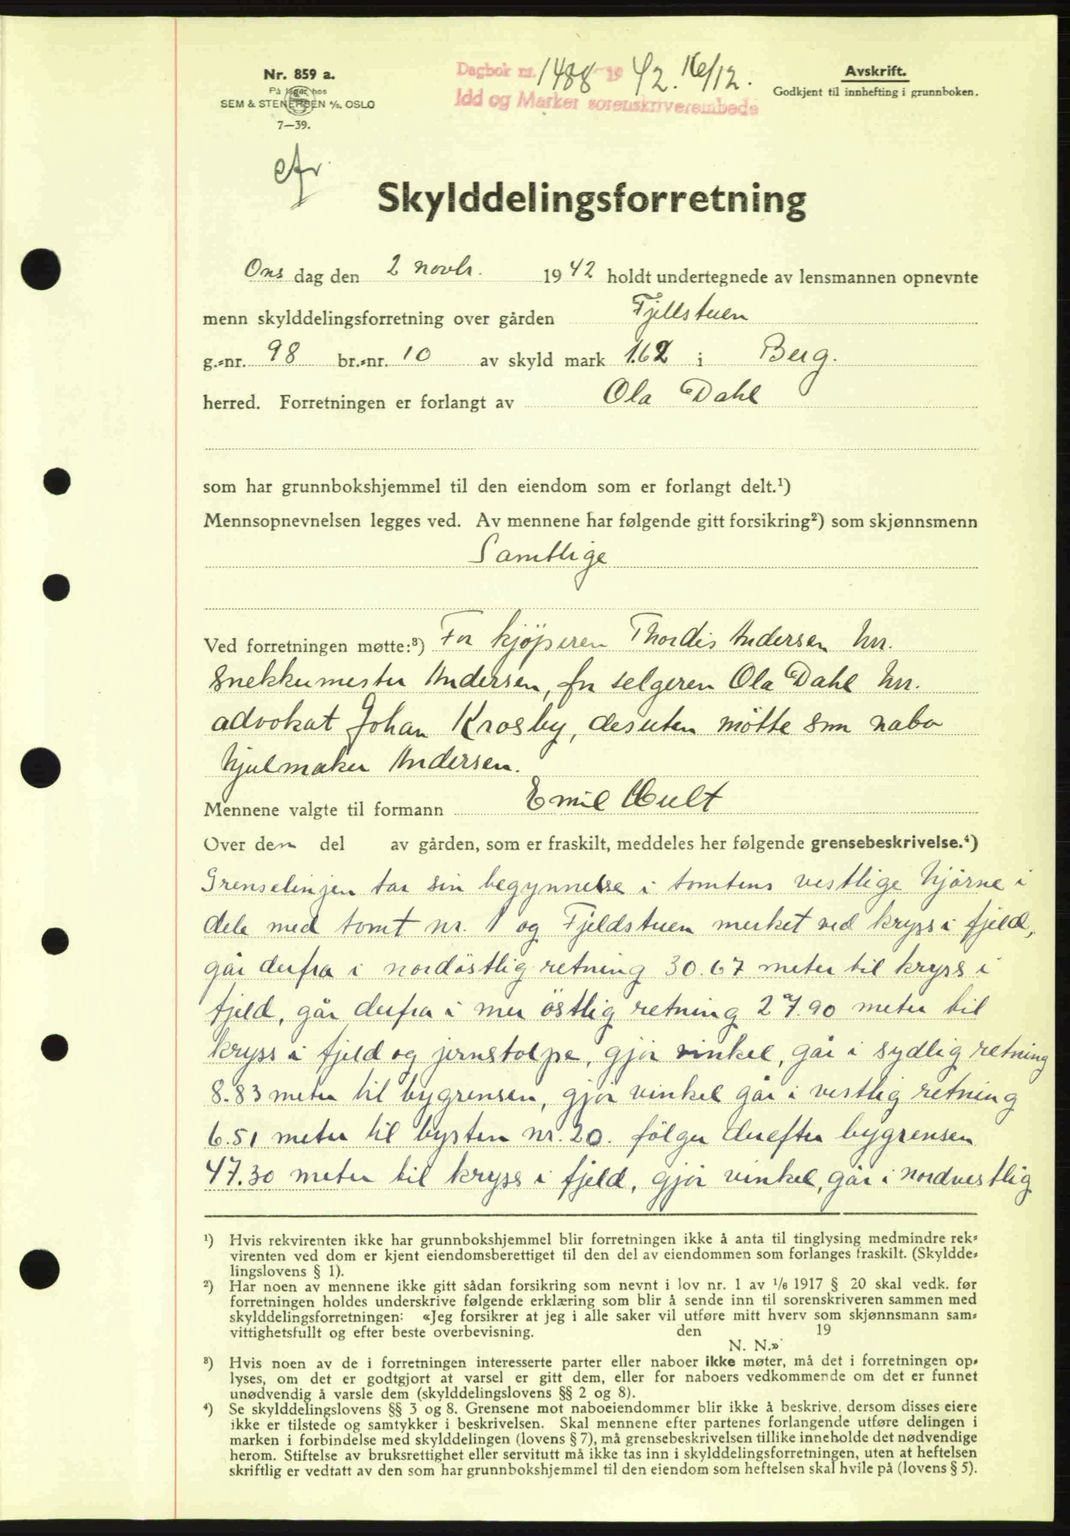 Nr. 859 a.
På lager hos
SEM & STENERSEN A/S. OSLO
7—39.
Dagbok nr. 1488 1942. 16/12.
Idd og Marker sorenskriverembede
Avskrift.
Godkjent til innhefting i grunnboken.
Skylddelingsforretning
Ons dag den 2 novbr. 1942 holdt undertegnede av lensmannen opnevnte
menn skylddelingsforretning over gården Fjellstuen
g.-nr. 98 br.-nr. 10 av skyld mark 1.62 i Berg.
herred. Forretningen er forlangt av Ola Dahl
som har grunnbokshjemmel til den eiendom som er forlangt delt.¹)
Mennsopnevnelsen legges ved. Av mennene har følgende gitt forsikring²) som skjønnsmenn
Samtlige
Ved forretningen møtte:³) For kjöperen Thordis Andersen hrr.
Snekkermester Andersen, for selgeren Ola Dahl hrr.
advokat Johan Krosby, desuten mötte som nabo
hjulmaker Andersen.
Mennene valgte til formann Emil Hult
Over den del av gården, som er fraskilt, meddeles her følgende grensebeskrivelse.⁴)
Grenselinjen tar sin begynnelse i tomtens vestlige hjörne i
dele med tomt nr. 1 og Fjeldstuen merket ved kryss i fjeld,
går derfra i nordöstlig retning 30.67 meter til kryss i
fjeld, går derfra i mer östlig retning 27.90 meter til
kryss i fjeld og jernstolpe, gjör vinkel, går i sydlig retning
8.83 meter til bygrensen, gjör vinkel går i vestlig retning
6.51 meter til bysten nr. 20. fölger derefter bygrensen
47.30 meter til kryss i fjeld, gjör vinkel, går i nordvestlig
¹) Hvis rekvirenten ikke har grunnbokshjemmel blir forretningen ikke å anta til tinglysing medmindre rek-
virenten ved dom er kjent eiendomsberettiget til den del av eiendommen som forlanges fraskilt. (Skyldde-
lingslovens § 1).
²) Har noen av mennene ikke gitt sådan forsikring som nevnt i lov nr. 1 av 1/6 1917 § 20 skal vedk. før
forretningen holdes underskrive følgende erklæring som blir å sende inn til sorenskriveren sammen med
skylddelingsforretningen: «Jeg forsikrer at jeg i alle saker vil utføre mitt hverv som skjønnsmann sam-
vittighetsfullt og efter beste overbevisning. den 19
N. N.»
³) Hvis noen av de i forretningen interesserte parter eller naboer ikke møter, må det i forretningen op-
lyses, om det er godtgjort at varsel er gitt dem, eller for naboers vedkommende om det er funnet
unødvendig å varsle dem (skylddelingslovens §§ 2 og 8).
⁴) Se skylddelingslovens §§ 3 og 8. Grensene mot naboeiendommer blir ikke å beskrive, dersom disses eiere
ikke er tilstede og samtykker i beskrivelsen. Skal mennene efter partenes forlangende utføre delingen i
marken i forbindelse med skylddelingen (lovens § 7), må grensebeskrivelsen tillike inneholde det nødvendige
herom. Stiftelse av bruksrettighet eller servitutt må ikke tas inn i skylddelingsforretningen, uten at heftelsen
skriftlig er vedtatt av den som har grunnbokshjemmel til den eiendom som heftelsen skal hvile på (lovens § 5).